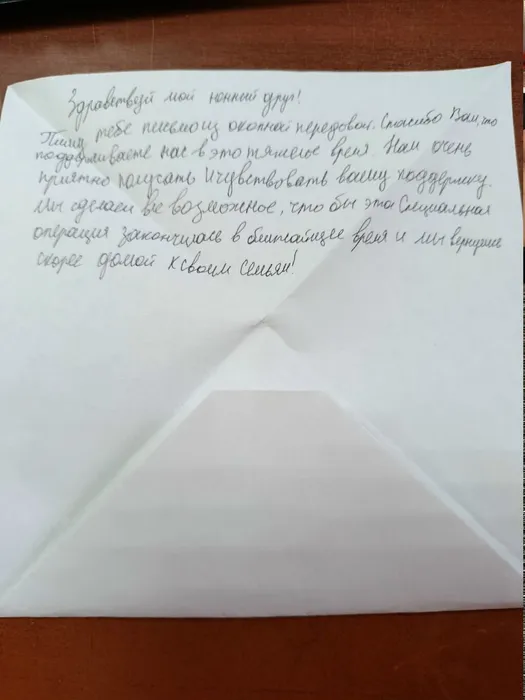 Здравствуй мой юнный друг!
Пишу тебе письмо из окопной передовой. Спасибо Вам, что
поддерживаете нас в это тяжелое время. Нам очень
приятно получать и чувствовать вашу поддержку.
Мы сделаем все возможное, что бы эта Специальная
операция закончилась в ближайщее время и мы вернулись
скорее домой к своим семьям!